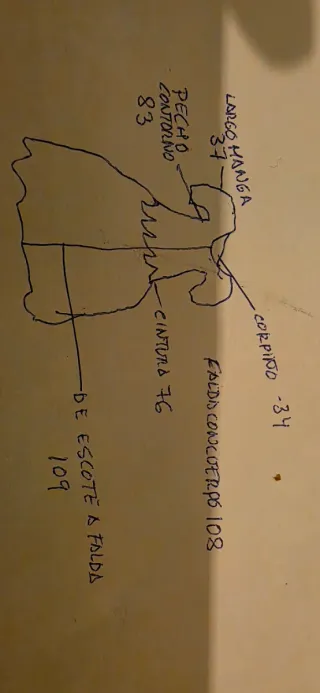 LARGO MANGA
37
PECHO
CONTORNO
83
CORPIÑO -34
FALDA CON CUERPO 108
CINTURA 76
DE ESCOTE A FALDA
109